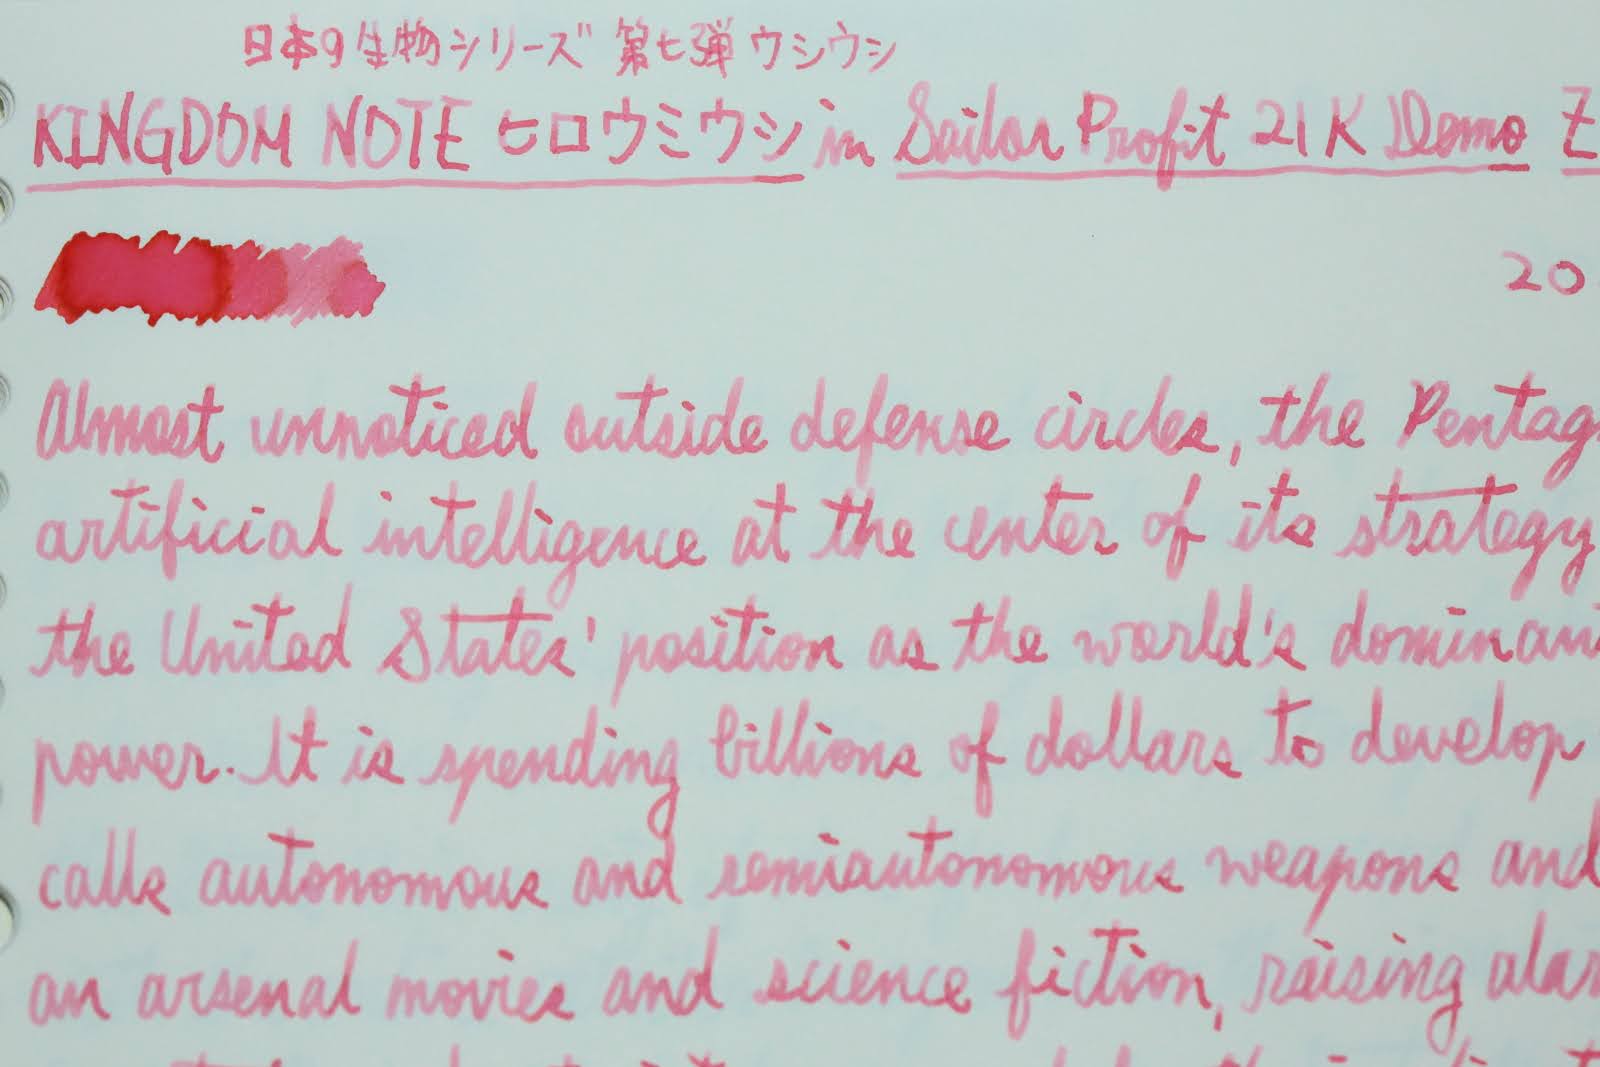 日本の生物シリーズ 第七弾 ウシウシ
KINGDOM NOTE ヒロウミウシ in Sailor Profit 21K Demo Z
20
Almost unnoticed outside defense circles, the Pentag
artificial intelligence at the center of its strategy
the United States' position as the world's dominan
power. It is spending billions of dollars to develop
calls autonomous and semiautonomous weapons and
an arsenal movies and science fiction, raising alar